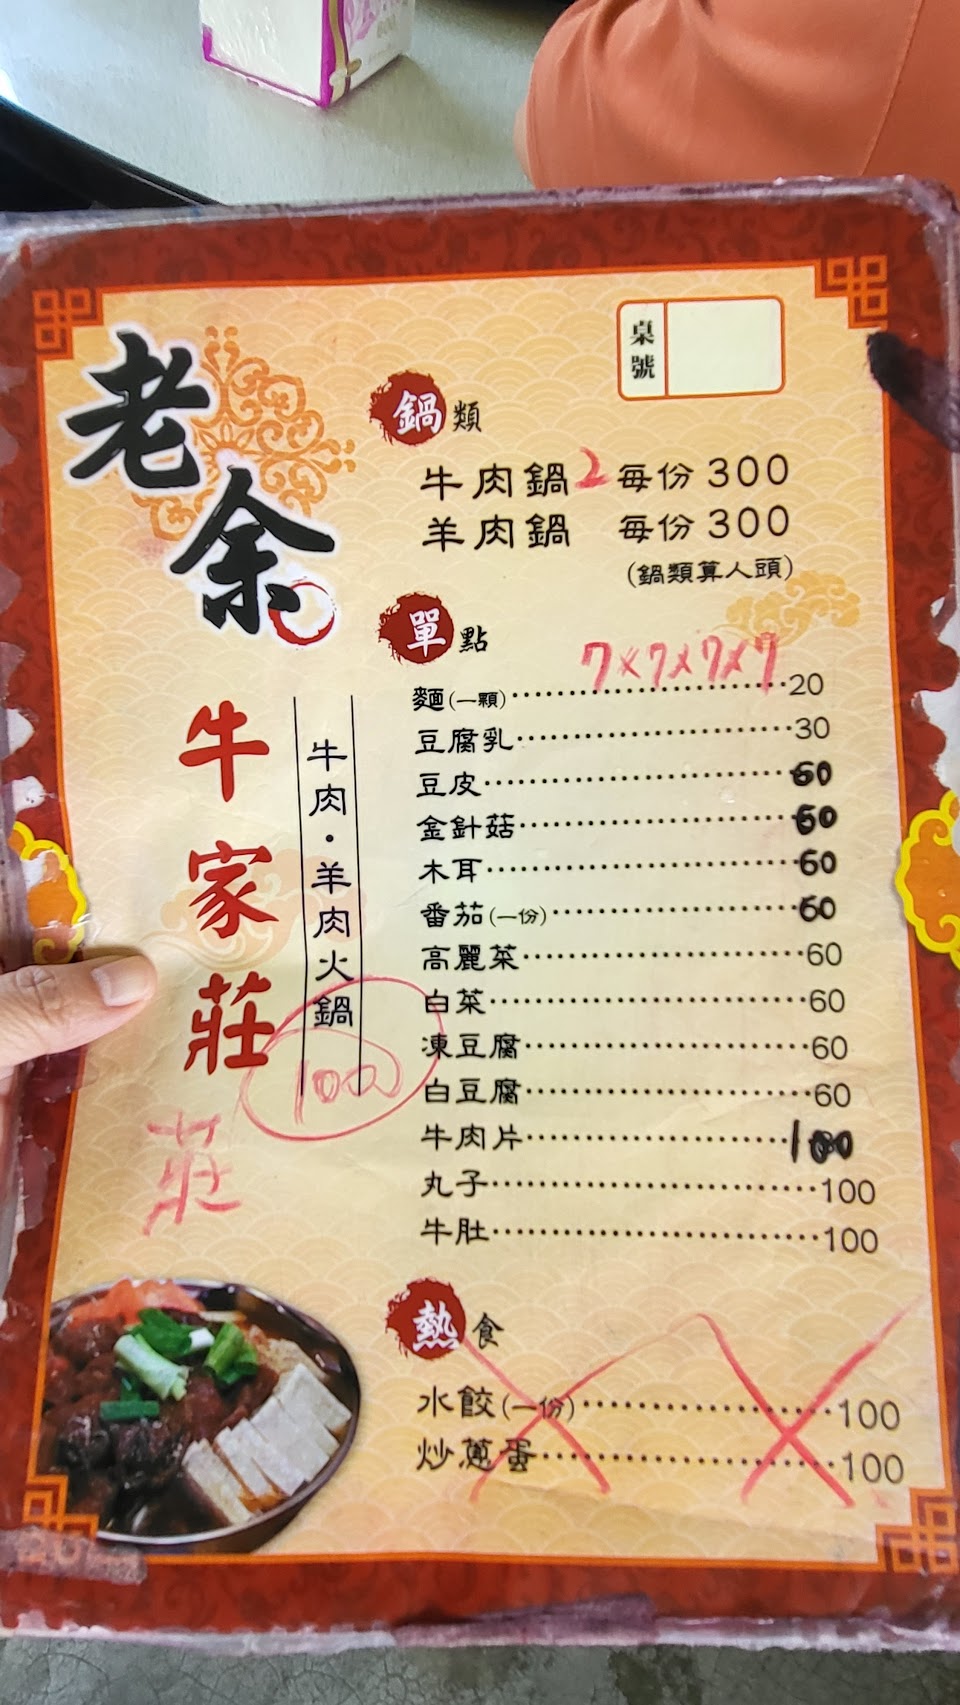 老余
牛家莊
牛肉·羊肉火鍋
1000
莊
桌號
鍋類
牛肉鍋 2 每份 300
羊肉鍋 每份 300
(鍋類算人頭)
單點
7×7×7×7
麵(一顆)························20
豆腐乳························30
豆皮························60
金針菇························60
木耳························60
番茄(一份)························60
高麗菜························60
白菜························60
凍豆腐························60
白豆腐························60
牛肉片························100
丸子························100
牛肚························100
熱食
水餃(一份)························100
炒蔥蛋························100